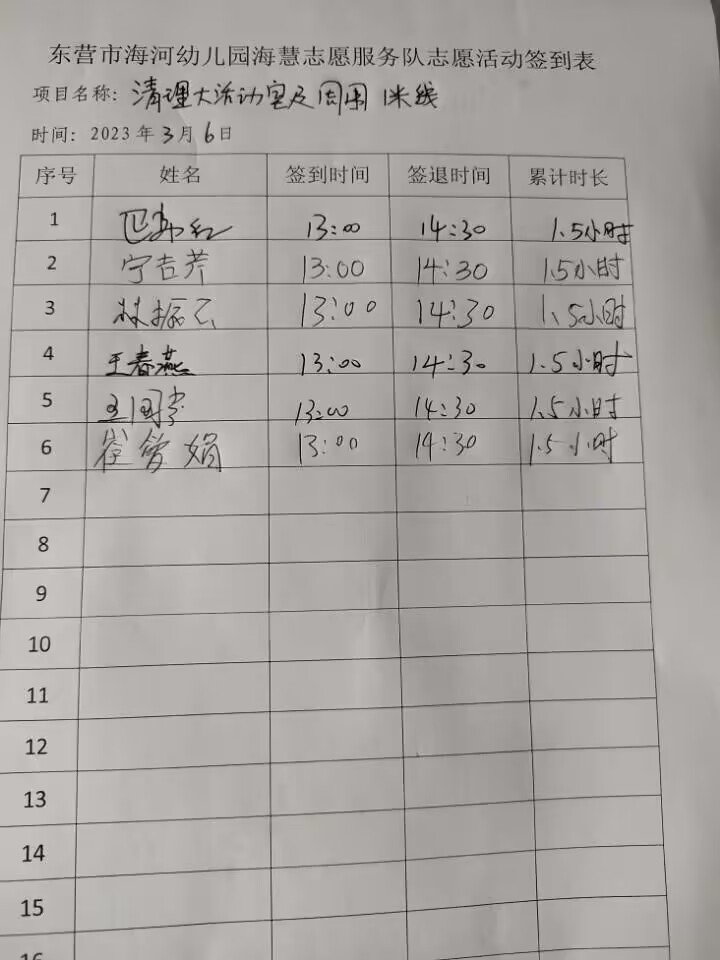 东营市海河幼儿园海慧志愿服务队志愿活动签到表
项目名称：清理大活动室及周围1米线
时间：2023年3月6日
序号 姓名 签到时间 签退时间 累计时长
1 13:00 14:30 1.5小时
2 宁吉芹 13:00 14:30 1.5小时
3 林振云 13:00 14:30 1.5小时
4 王春燕 13:00 14:30 1.5小时
5 13:00 14:30 1.5小时
6 崔曾娟 13:00 14:30 1.5小时
7
8
9
10
11
12
13
14
15
16